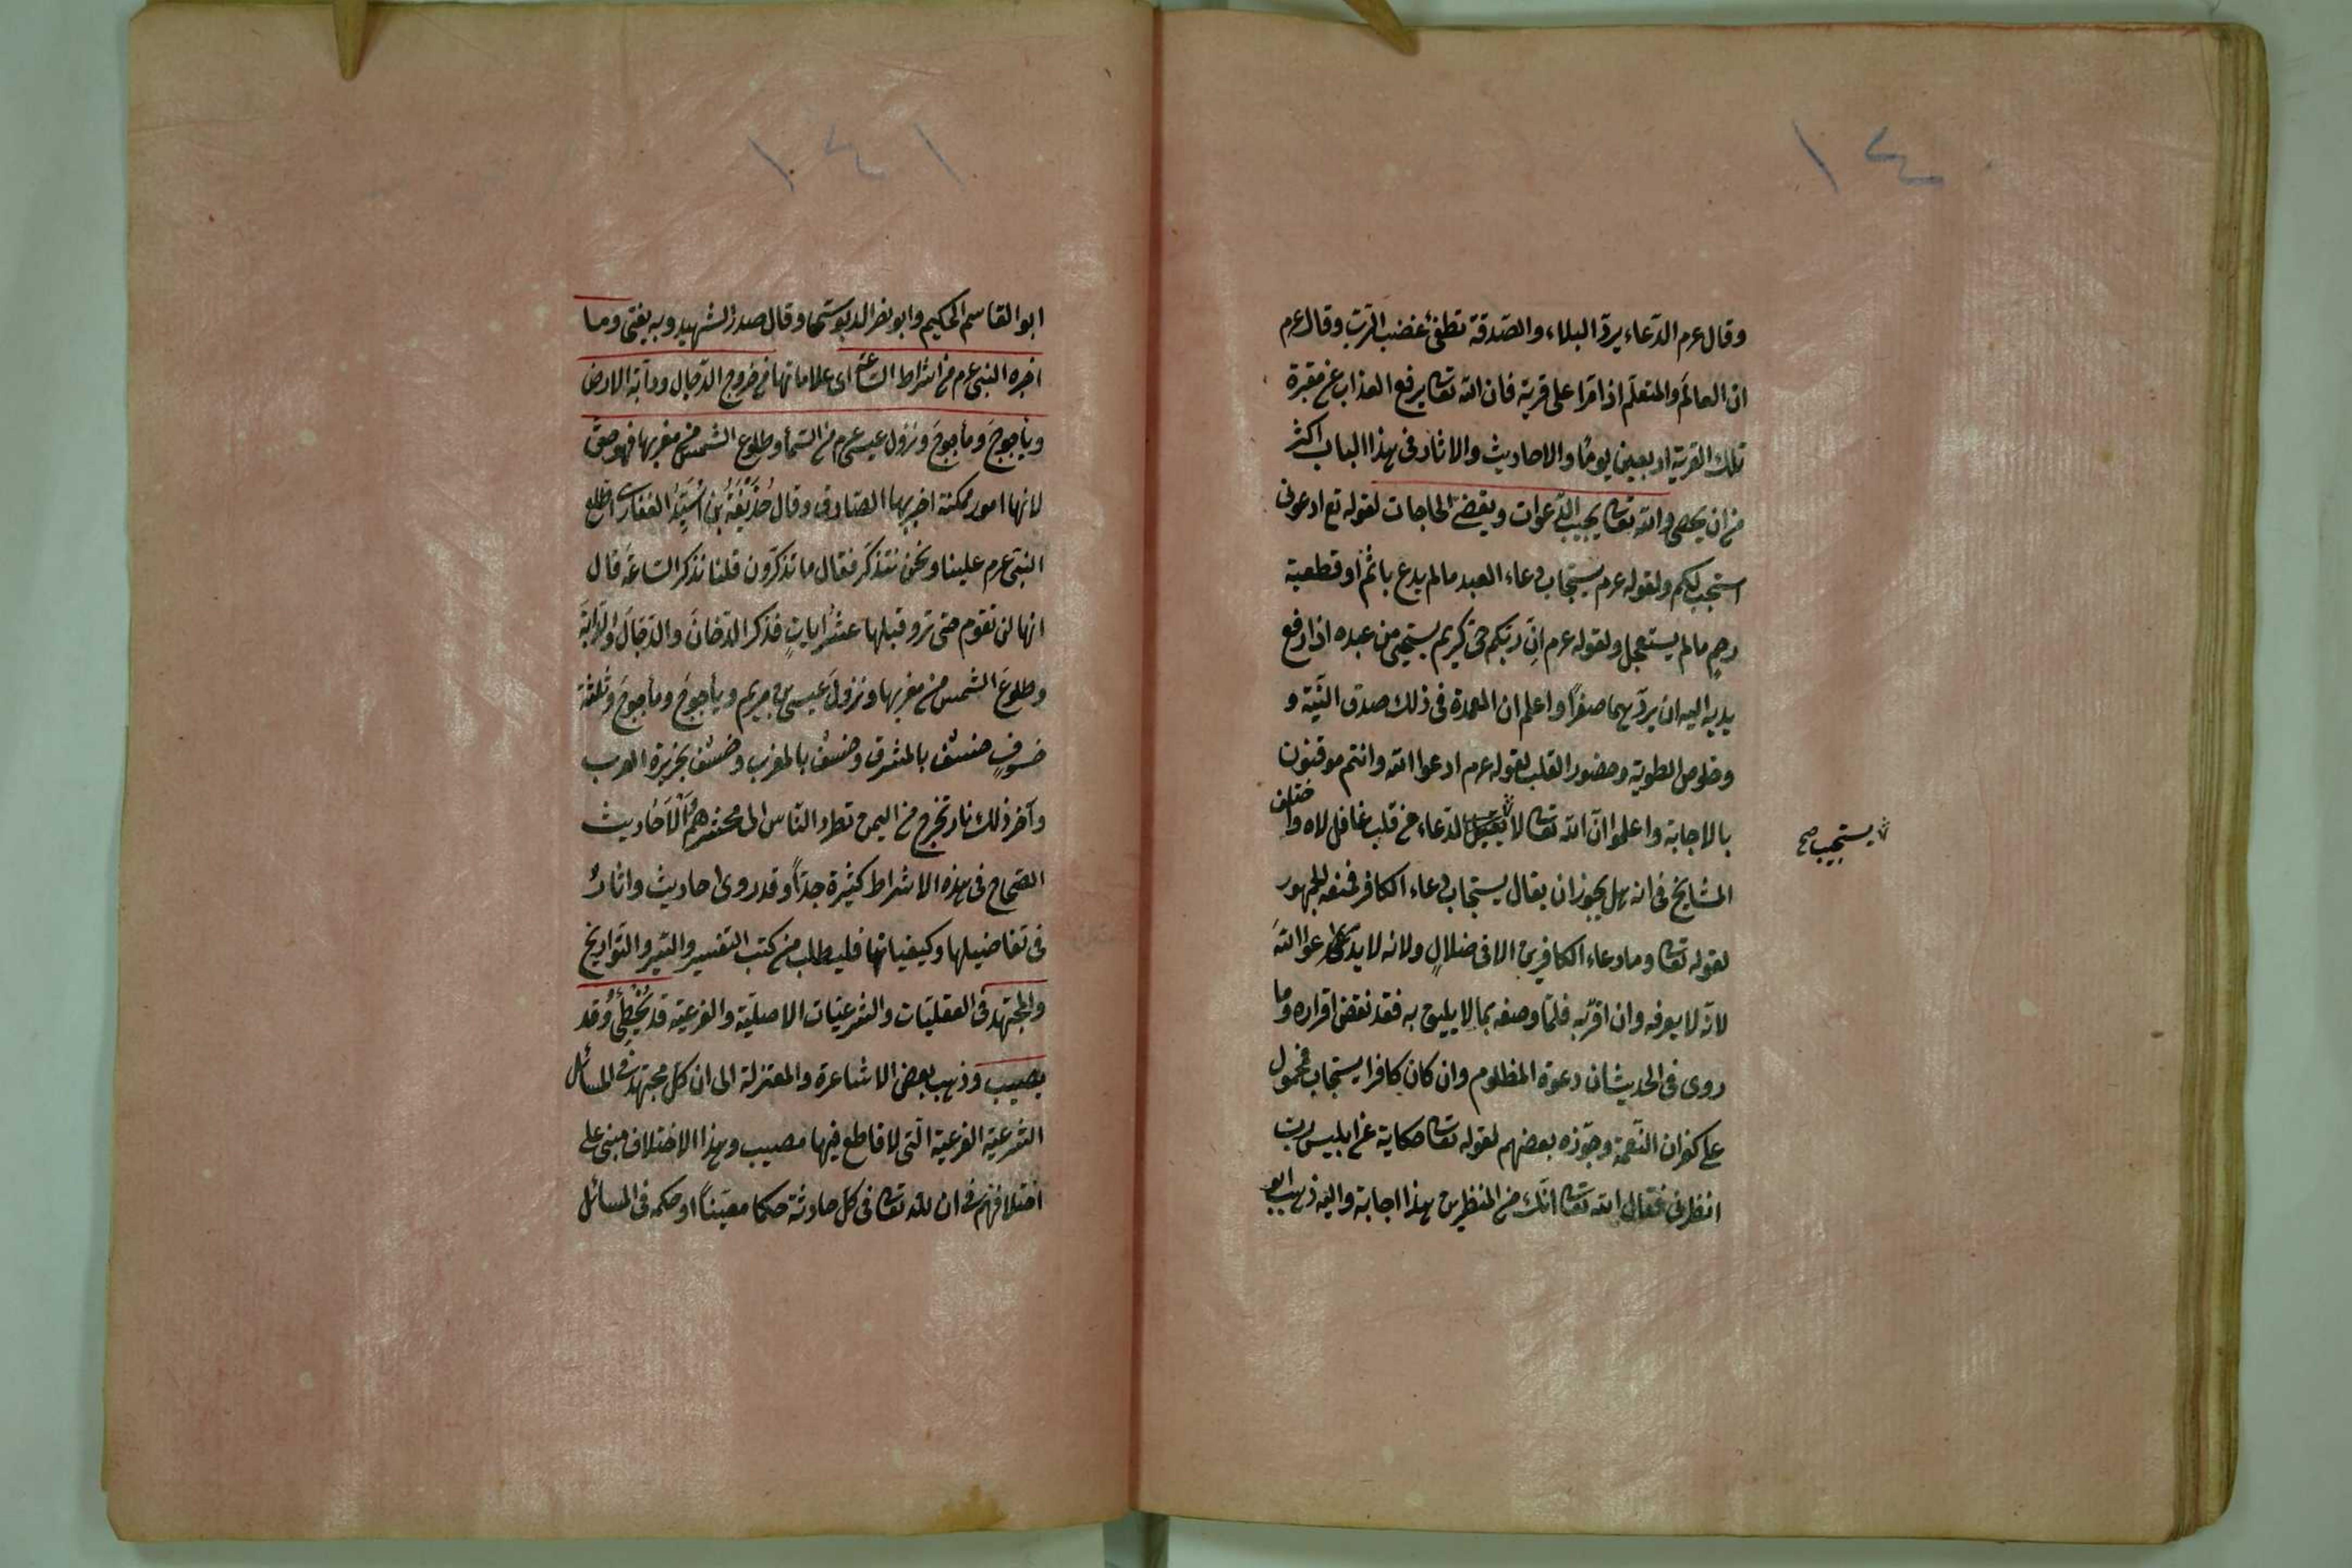 ١٤٠
وقال عرم الدّعاء يردّ البلاء والصّدقة تطفئ غضب الرّب وقال عرم
ان العالَم والمتعلّم اذا مّرا على قرية فان الله تعا يرفع العذاب عن مقبرة
تلك القرية اربعين يومًا والاحاديث والاثار فى هذا الباب اكثر
من ان يحصى والله تعا يجيب الدّعوات ويقضى الحاجات لقوله تع ادعونى
استجب لكم ولقوله عرم يستجاب دعاء العبد مالم يدع باثم او قطعية
رحمٍ مالم يستعجل ولقوله عرم انّ ربّكم حىّ كريم يستحيى من عبده اذا رفع
يديه اليه ان يردّ هما صفرًا واعلم ان العمدة فى ذلك صدق النّيّة و
وخلوص الطوية وحضور القلب لقوله عرم ادعوا الله وانتم موقنون
بالاجابة واعلموا انّ الله تعا لا يقبل الدعاء من قلب غافل لاه واختلف
يستجيب صح
المشايخ فى انه هل يجوز ان يقال يستجاب دعاء الكافر فمنعه الجمهور
لقوله تعا وما دعاء الكافرين الا فى ضلالٍ ولانه لا يدعوا اللهَ
لانّه لا يعرفه وان اقرّ به فلمّا وصفه بما لا يليق به فقد نقض اقراره وما
روى فى الحديث ان دعوة المظلوم وان كان كافرا يستجاب فمحمول
على كفران النّعمة وجوّزه بعضهم لقوله تعا حكاية عن ابليس ربّ
انظرنى فقال الله تعا انّك من المنظرين هذا اجابة واليه ذهب ابو
١٤١
ابو القاسم الحكيم وابو نصر الدبوسى وقال صدر الشهيد وبه يفتى وما
اخبره النبى عرم من اشراط السّاعة اى علاماتها من خروج الدّجال ودآبّة الارض
ويأجوجَ ومأجوجَ ونزول عيسى عرم من السّمأ وطلوع الشمس من مغربها فهو حقّ
لانها امور ممكنة اخبر بها الصّادق وقال حُذَيْفَةُ بن اُسَيِّدُ الغفارى اطّلع
النبّى عرم علينا ونحن نتذكّر فقال ما تذكّرون قلنا نذكر السّاعةَ قال
انها لن تقوم حتى تروا قبلها عشر ايَاتٍ فذكر الدّخانَ والدّجالَ والدّابّةَ
وطلوعَ الشمس من مغربها ونزولَ عيسى بن مريم ويأجوجَ ومأجوجَ وثلثة
خسوفٍ خسْف بالمشرق وخسْف بالمغرب وخسْف بجزيرة العرب
وآخر ذلك نار تخرج من اليمن تطرد النّاس الى محشرهم الاحاديث
الصّحاح فى هذه الاشراط كثيرة جدّاً وقد روى احاديث واثارٌ
فى تفاضيلها وكيفياتها فليطلب من كتب التفسير والسّير والتواريخ
والمجتهد فى العقليّات والشرعيّات الاصليّة والفرعيّة قد يُخْطِئُ وقد
يصيب وذهب بعض الاشاعرة والمعتزلة الى ان كلّ مجتهد فى المسائل
الشرعيّة الفرعية الّتى لا قاطع فيها مصيب وهذا الاختلاف مبنى على
اختلافهم فى ان لله تعا فى كل حادثة حكما معيّناً او حكمه فى المسائل